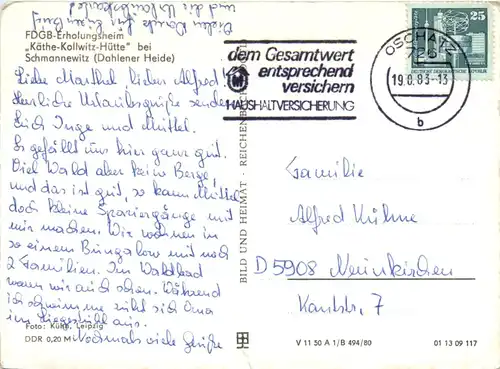 Vielen Dank für Euren Brief
und die Urlaubskarte!
FDGB-Erholungsheim
„Käthe-Kollwitz-Hütte" bei
Schmannewitz (Dahlener Heide)
Liebe Marthel lieber Alfred!
Herzliche Urlaubsgrüße senden
Euch Inge und Mittel.
Es gefällt uns hier ganz gut.
Viel Wald aber keine Berge,
und das ist gut, so kann Mittel
doch kleine Spaziergänge mit
mir machen. Wir wohnen in
so einem Bungalow mit noch
2 Familien. Im Waldbad
waren wir auch schon. Während
ich schwimme ruht sich Oma
im Liegestuhl aus.
Nochmals viele Grüße
Foto: Kühn, Leipzig
DDR 0,20 M
BILD UND HEIMAT · REICHENBACH
dem Gesamtwert
entsprechend
versichern
HAUSHALTVERSICHERUNG
OSCHATZ
726
19.8.83-13
b
25
DEUTSCHE DEMOKRATISCHE REPUBLIK
Familie
Alfred Kühne
D 5908 Neunkirchen
Kantstr. 7
V 11 50 A 1/B 494/80
01 13 09 117